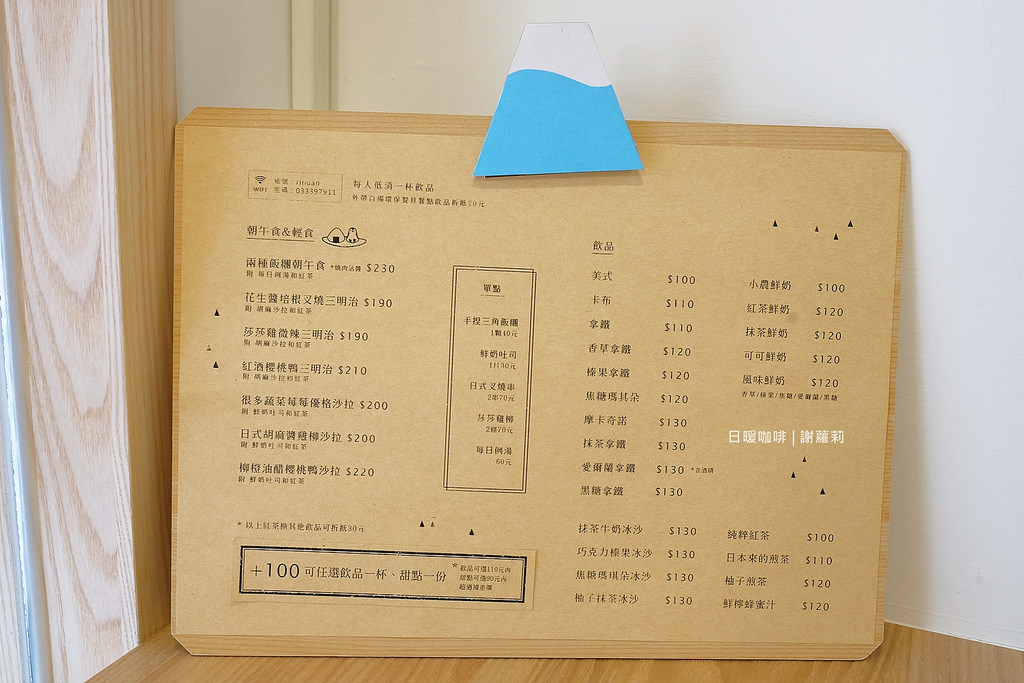 WIFI
帳號：rihuan
密碼：033397911
每人低消一杯飲品
外帶自備環保餐具餐點飲品折抵20元
朝午食&輕食
兩種飯糰朝午食 *燒肉沾醬 $230
附 每日例湯和紅茶
花生醬培根叉燒三明治 $190
附 胡麻沙拉和紅茶
莎莎雞微辣三明治 $190
附 胡麻沙拉和紅茶
紅酒櫻桃鴨三明治 $210
附 胡麻沙拉和紅茶
很多蔬菜莓莓優格沙拉 $200
附 鮮奶吐司和紅茶
日式胡麻醬雞柳沙拉 $200
附 鮮奶吐司和紅茶
柳橙油醋櫻桃鴨沙拉 $220
附 鮮奶吐司和紅茶
* 以上紅茶換其他飲品可折抵30元
+100 可任選飲品一杯、甜點一份
*飲品可選110元內
甜點可選90元內
超過補差價
單點
手捏三角飯糰
1顆40元
鮮奶吐司
1片30元
日式叉燒串
2串70元
莎莎雞柳
2條70元
每日例湯
60元
飲品
美式 $100
卡布 $110
拿鐵 $110
香草拿鐵 $120
榛果拿鐵 $120
焦糖瑪其朵 $120
摩卡奇諾 $130
抹茶拿鐵 $130
愛爾蘭拿鐵 $130 *含酒精
黑糖拿鐵 $130
抹茶牛奶冰沙 $130
巧克力榛果冰沙 $130
焦糖瑪琪朵冰沙 $130
柚子抹茶冰沙 $130
小農鮮奶 $100
紅茶鮮奶 $120
抹茶鮮奶 $120
可可鮮奶 $120
風味鮮奶 $120
香草/榛果/焦糖/愛爾蘭/黑糖
日暖咖啡|謝蘿莉
純粹紅茶 $100
日本來的煎茶 $110
柚子煎茶 $120
鮮檸蜂蜜汁 $120